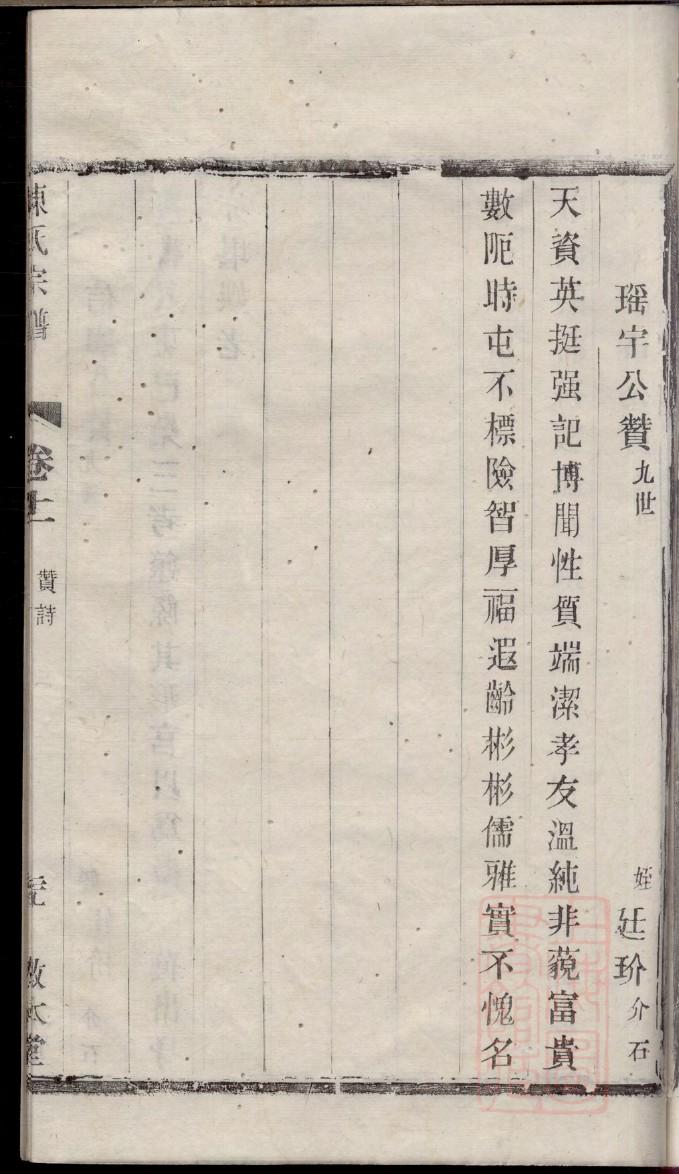 瑶宇公贊 九世 姪 廷玠 介石
天資英挺强記博聞性質端潔孝友溫純非藐富貴
數阨時屯不標險智厚福遐齡彬彬儒雅實不愧名
陳氏宗譜 卷十一 贊詩 敦本堂